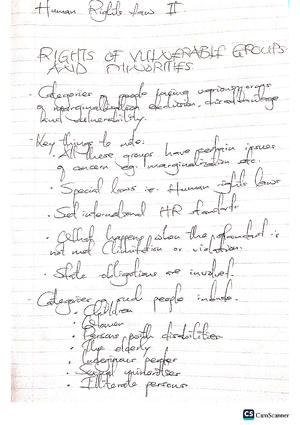 Human Rights Law II
RIGHTS OF VULNERABLE GROUPS
AND MINORITIES
- Categories of people facing various forms
of marginalization exclusion, disadvantage
and vulnerability.
- Key things to note:
• All these groups have certain issues
of concern eg. marginalization etc.
• Special laws ie. Human rights laws
• Set international HR standards
• happens when the standard is
not met (limitation or violation.
• State obligations are involved.
- Categories of such people include.
• Children
• Women
• Persons with disabilities
• The elderly
• Indigenous people
• Sexual minorities
• Illiterate persons
CS CamScanner